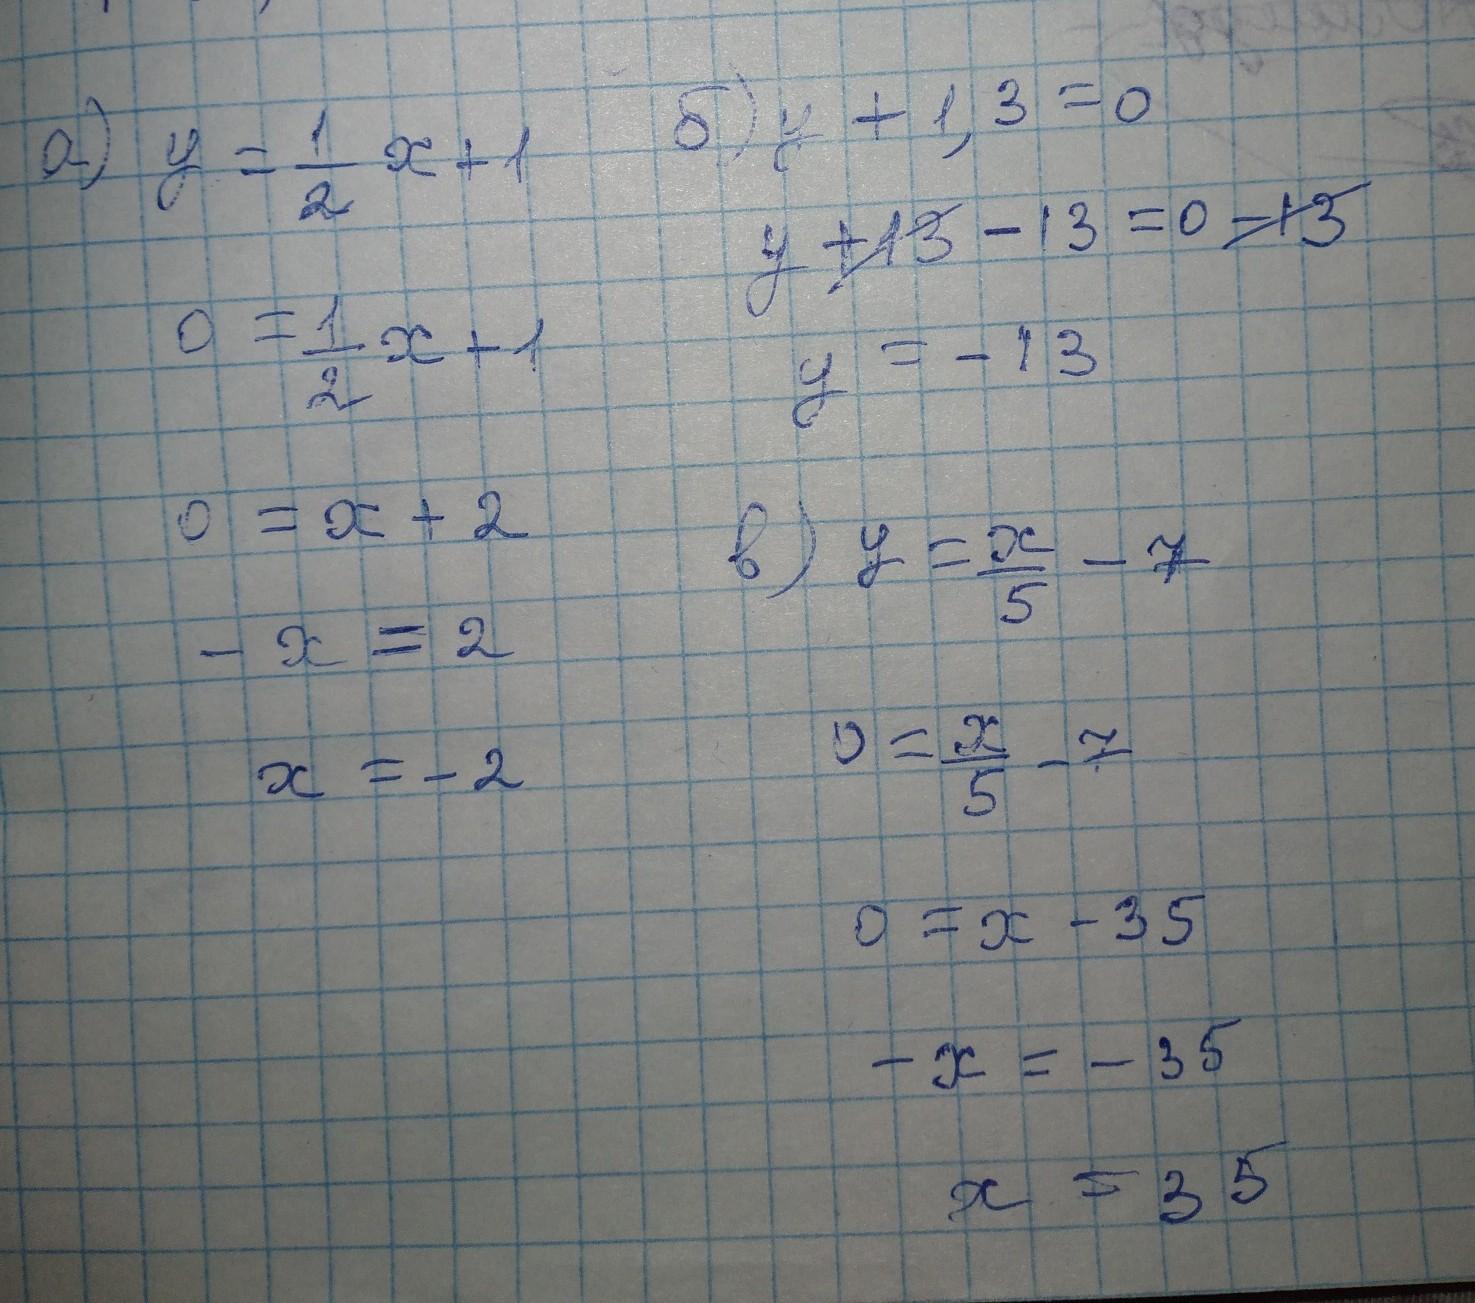 а) y = 1/2 x + 1
0 = 1/2 x + 1
0 = x + 2
- x = 2
x = - 2
б) y + 1,3 = 0
y + 13 - 13 = 0 - 13
y = - 13
в) y = x/5 - 7
0 = x/5 - 7
0 = x - 35
- x = - 35
x = 35